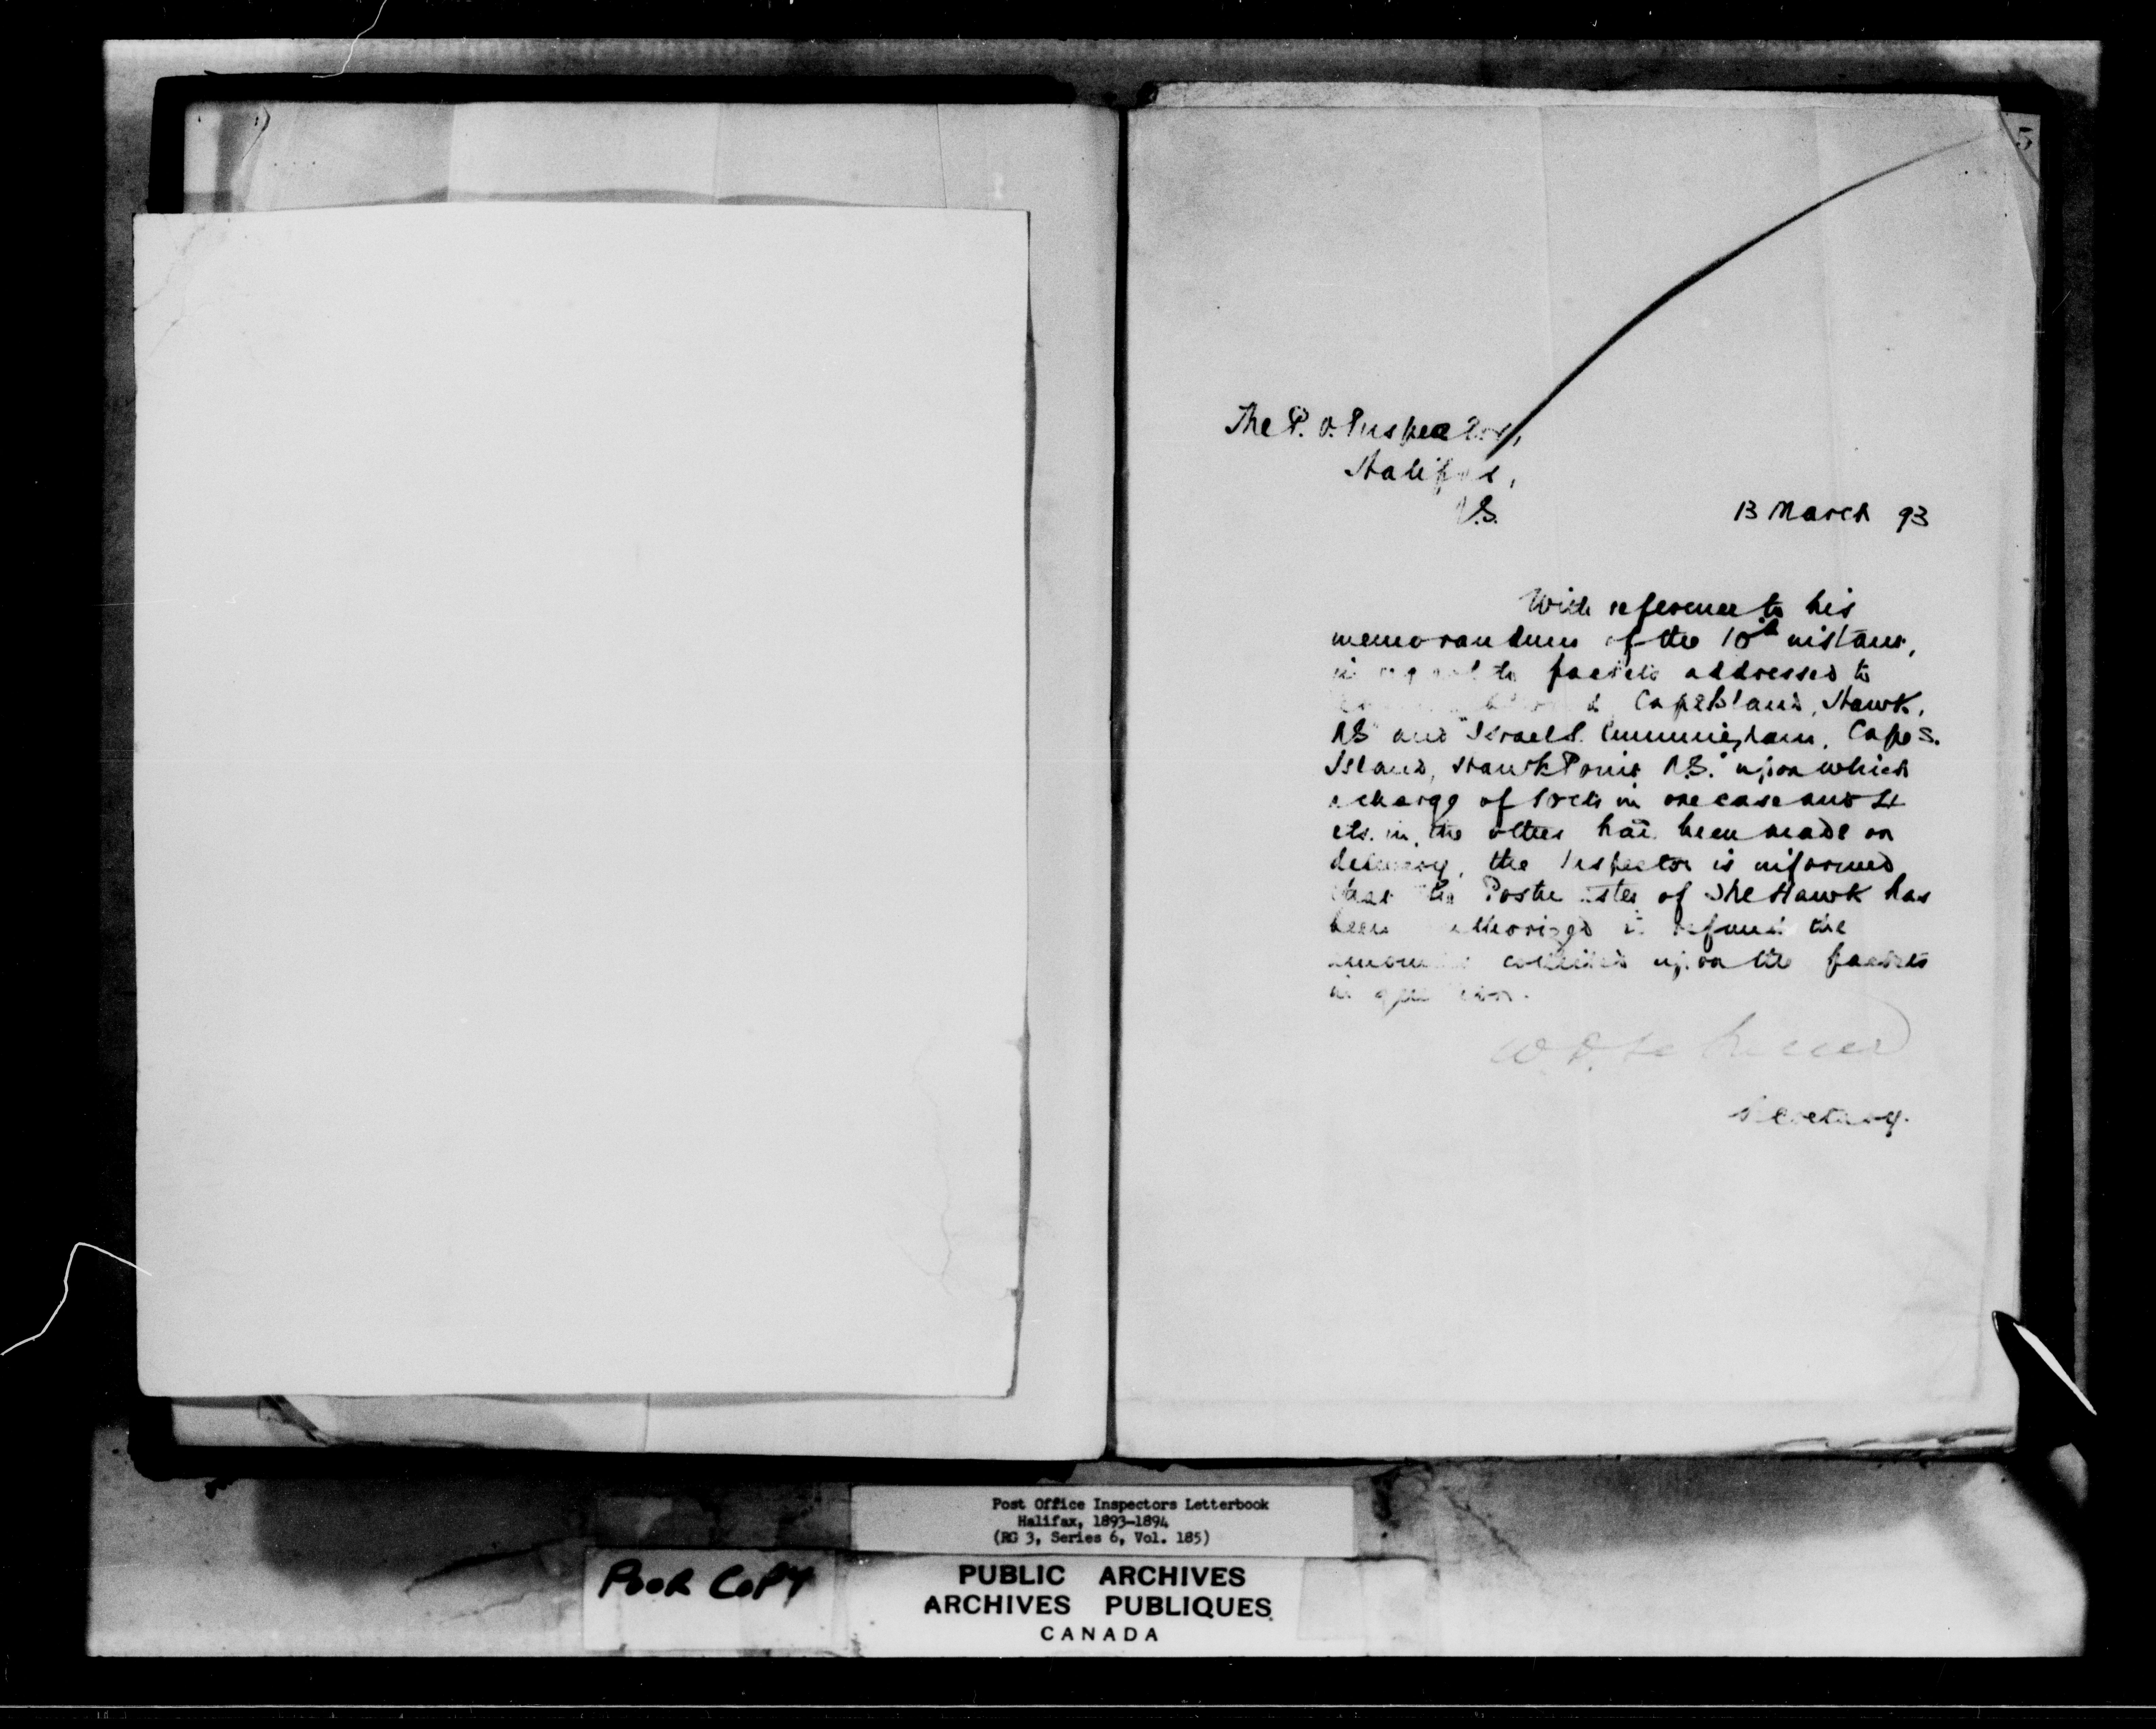 5
The P. O. Inspector,
Halifax,
N.S.
13 March 93
With reference to his
memorandum of the 10th instant,
in regard to packets addressed to
Cape Island, Hawk,
N.S. and "Israel S. Cunningham, Cape S.
Island, Hawk Point N.S." upon which
a charge of 10 cts in one case and
cts. in the other had been made on
delivery, the Inspector is informed
that the Postmaster of The Hawk has
been authorized to refund the
amounts collected upon the packets
in question.
Secretary.
Post Office Inspectors Letterbook
Halifax, 1893-1894
(RG 3, Series 6, Vol. 185)
POOR COPY
PUBLIC ARCHIVES
ARCHIVES PUBLIQUES
CANADA